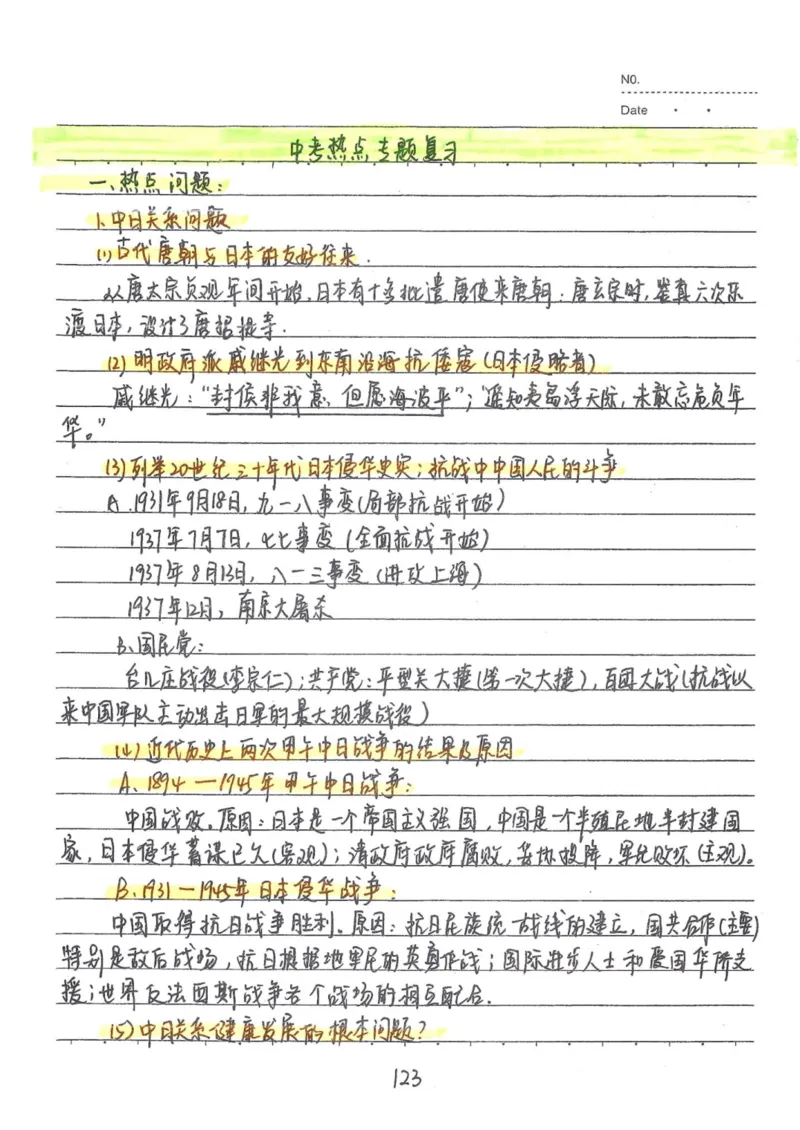 NO.
Date
中考热点专题复习
一、热点问题：
1、中日关系问题
(1)古代唐朝与日本的友好往来．
从唐太宗贞观年间开始，日本有十多批遣唐使来唐朝；唐玄宗时，鉴真六次东
渡日本，设计了唐招提寺．
(2)明政府派戚继光到东南沿海抗倭寇(日本侵略者)
戚继光：“封侯非我意，但愿海波平”；“遥知夷岛浮天际，未敢忘危负年
华。”
(3)列举20世纪三十年代日本侵华史实；抗战中中国人民的斗争
A．1931年9月18日，九一八事变(局部抗战开始)
1937年7月7日，七七事变(全面抗战开始)
1937年8月13日，八一三事变(进攻上海)
1937年12月，南京大屠杀
B、国民党：
台儿庄战役(李宗仁)；共产党：平型关大捷(第一次大捷)，百团大战(抗战以
来中国军队主动出击日军的最大规模战役)
(4)近代历史上两次甲午中日战争的结果及原因
A、1894—1945年甲午中日战争：
中国战败。原因：日本是一个帝国主义强国，中国是一个半殖民地半封建国
家，日本侵华蓄谋已久(客观)；清政府政府腐败，妥协投降，军纪败坏(主观)。
B、1931—1945年日本侵华战争：
中国取得抗日战争胜利。原因：抗日民族统一战线的建立，国共合作(主要)
特别是敌后战场，抗日根据地军民的英勇作战；国际进步人士和爱国华侨支
援；世界反法西斯战争各个战场的相互配合．
(5)中日关系健康发展的根本问题？
123